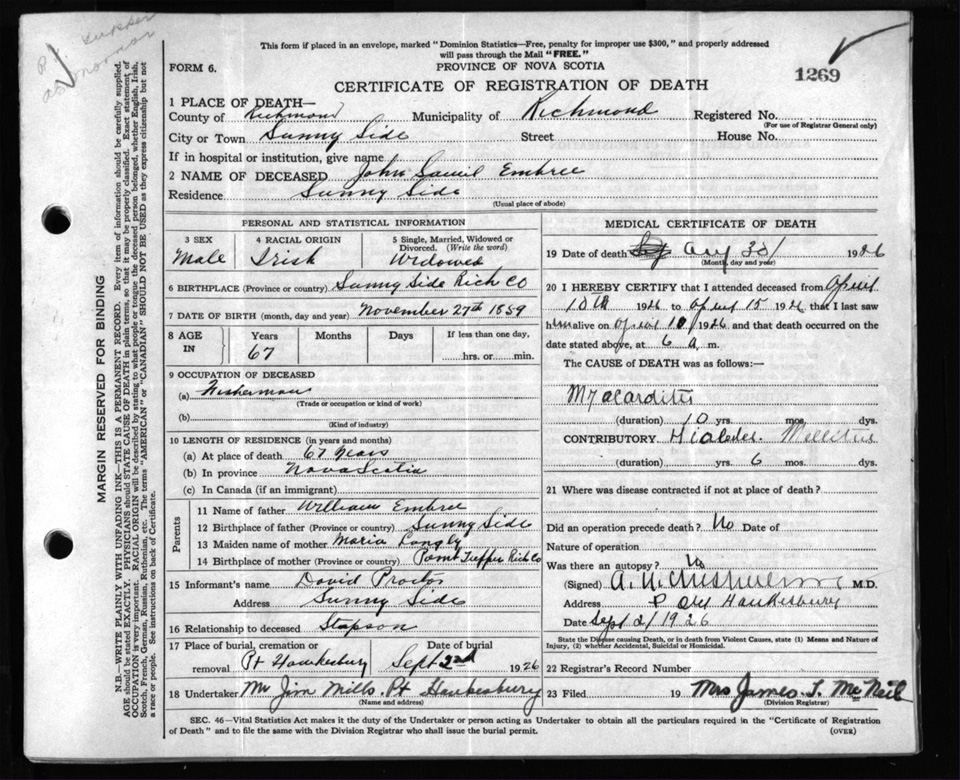 This form if placed in an envelope, marked "Dominion Statistics—Free, penalty for improper use $300," and properly addressed
will pass through the Mail "FREE."
FORM 6.
PROVINCE OF NOVA SCOTIA
1269
CERTIFICATE OF REGISTRATION OF DEATH
1 PLACE OF DEATH—
County of Richmond Municipality of Richmond Registered No.
(For use of Registrar General only)
City or Town Sunny Side Street House No.
If in hospital or institution, give name
2 NAME OF DECEASED John Embree
Residence Sunny Side
(Usual place of abode)
PERSONAL AND STATISTICAL INFORMATION
3 SEX 4 RACIAL ORIGIN 5 Single, Married, Widowed or
Divorced. (Write the word)
Male Irish Widowed
6 BIRTHPLACE (Province or country) Sunny Side Rich Co
7 DATE OF BIRTH (month, day and year) November 27th 1859
8 AGE IN Years Months Days If less than one day,
67 hrs. or min.
9 OCCUPATION OF DECEASED
(a) Fisherman
(Trade or occupation or kind of work)
(b)
(Kind of industry)
10 LENGTH OF RESIDENCE (in years and months)
(a) At place of death 67 Years
(b) In province Nova Scotia
(c) In Canada (if an immigrant)
Parents
11 Name of father William Embree
12 Birthplace of father (Province or country) Sunny Side
13 Maiden name of mother Maria
14 Birthplace of mother (Province or country) Point Tupper Rich Co
15 Informant's name David Proctor
Address Sunny Side
16 Relationship to deceased Stepson
17 Place of burial, cremation or Date of burial
removal Pt Hawkesbury Sept 2nd 1926
18 Undertaker Mr Jim Mills. Pt Hawkesbury
(Name and address)
MEDICAL CERTIFICATE OF DEATH
19 Date of death Aug 1926
(Month, day and year)
20 I HEREBY CERTIFY that I attended deceased from April
10th 1926 to April 15 1926 that I last saw
him alive on April 10/ 1926 and that death occurred on
date stated above, at 6 a. m.
The CAUSE of DEATH was as follows:—
Myocarditis
(duration) 10 yrs. mos. dys.
CONTRIBUTORY Mellitus
(duration) yrs. 6 mos. dys.
21 Where was disease contracted if not at place of death?
Did an operation precede death? No Date of
Nature of operation
Was there an autopsy? No
(Signed) M.D.
Address Hawkesbury
Date Sept 2/1926
State the Disease causing Death, or in death from Violent Causes, state (1) Means and Nature of
Injury, (2) whether Accidental, Suicidal or Homicidal.
22 Registrar's Record Number
23 Filed 19 Mrs James. McNeil
(Division Registrar)
SEC. 46—Vital Statistics Act makes it the duty of the Undertaker or person acting as Undertaker to obtain all the particulars required in the "Certificate of Registration
of Death" and to file the same with the Division Registrar who shall issue the burial permit. (OVER)
MARGIN RESERVED FOR BINDING
N.B.—WRITE PLAINLY, WITH UNFADING INK—THIS IS A PERMANENT RECORD. Every item of information should be carefully supplied.
AGE should be stated EXACTLY. PHYSICIANS should STATE CAUSE OF DEATH in plain terms, so that it may be properly classified. Exact statement of
OCCUPATION is very important. RACIAL ORIGIN will be described by stating to what people or tongue the deceased person belonged, whether English, Irish,
Scotch, French, German, Russian, Ruthenian, etc. The terms "AMERICAN" or "CANADIAN" SHOULD NOT BE USED as they express citizenship but not
a race or people. See instructions on back of Certificate.